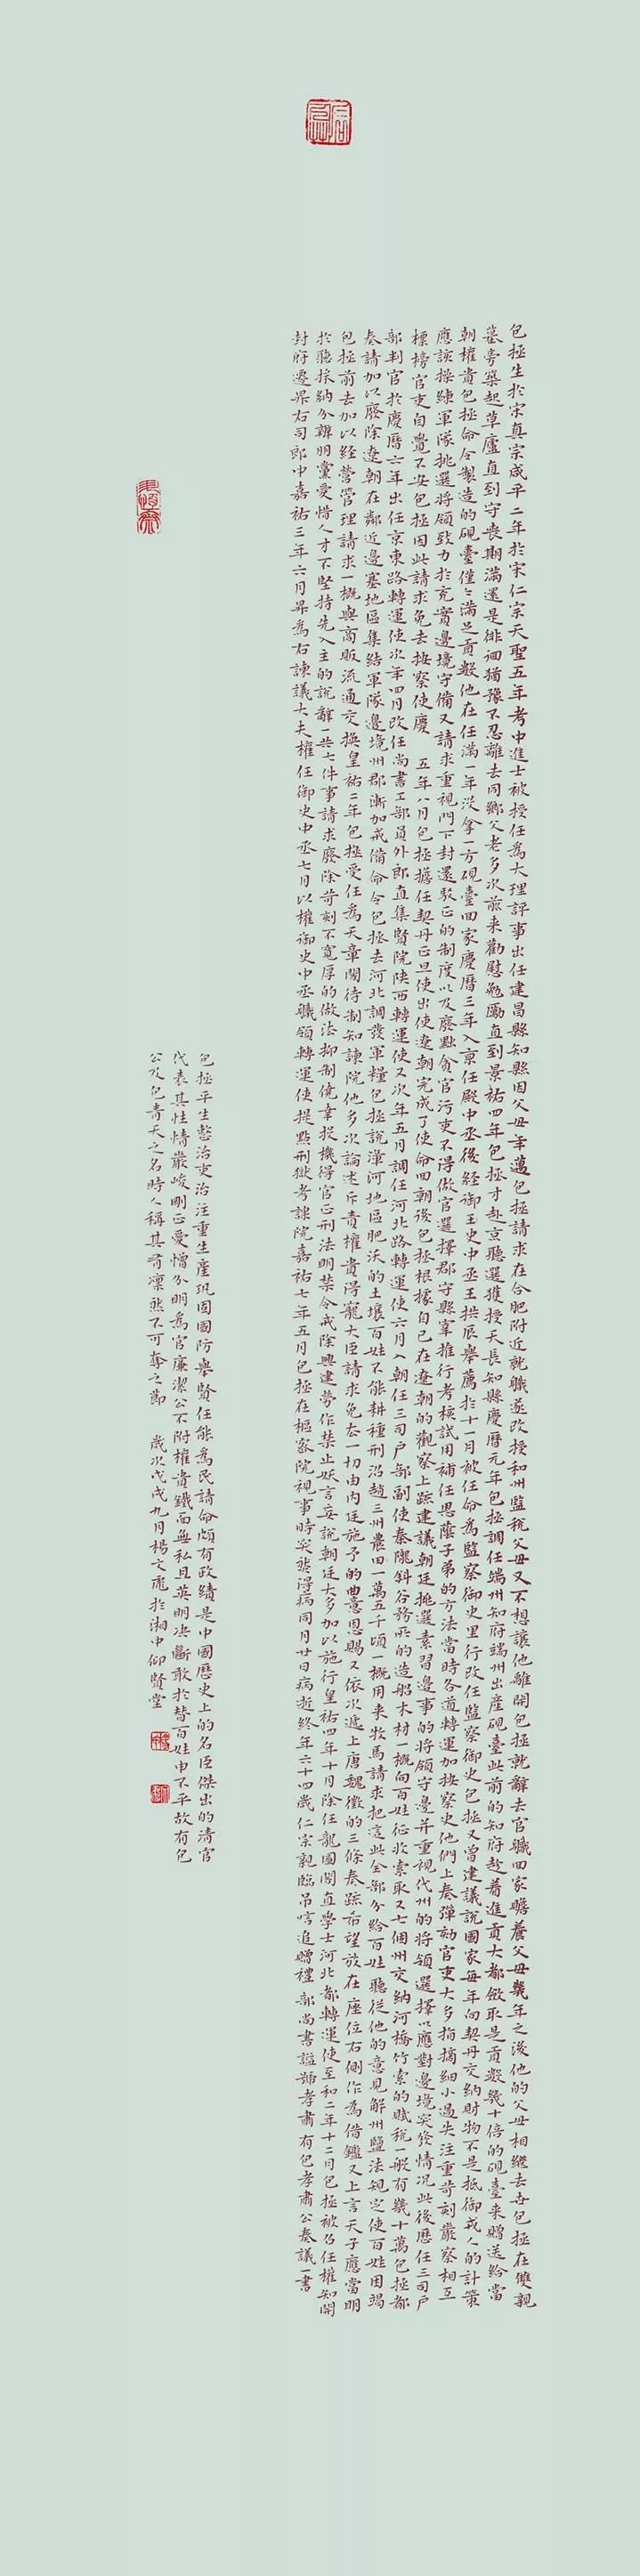 包拯生於宋真宗咸平二年於宋仁宗天聖五年考中進士被授任為大理評事出任建昌縣知縣因父母年邁包拯請求在合肥附近就職遂改授和州監稅父母又不想讓他離開包拯就辭去官職回家贍養父母幾年之後他的父母相繼去世包拯在雙親
墓旁築起草廬直到守喪期滿還是徘徊猶豫不忍離去同鄉父老多次前來勸慰勉勵直到景祐四年包拯才赴京聽選獲授天長知縣慶曆元年包拯調任端州知府端州出産硯臺此前的知府趁着進貢大都斂取是貢數幾十倍的硯臺來贈送給當
朝權貴包拯命令製造的硯臺僅僅滿足貢數他在任滿一年沒拿一方硯臺回家慶曆三年入京任殿中丞後經御史中丞王拱辰舉薦於十一月被任命為監察御史里行改任監察御史包拯又曾建議說國家每年向契丹交納財物不是抵御戎人的計策
應該操練軍隊挑選將領致力於充實邊境守備又請求重視門下封還駁正的制度以及廢黜貪官污吏不得做官選擇郡守縣宰推行考核試用補任恩蔭子弟的方法當時各道轉運加按察史他們上奏彈劾官吏大多指摘細小過失注重苛刻嚴察相互
標榜官吏自覺不安包拯因此請求免去按察使慶 五年八月包拯擔任契丹正旦使出使遼朝完成了使命回朝後包拯根據自己在遼朝的觀察上疏建議朝廷挑選素習邊事的將領守邊并重視代州的將領選擇以應對邊境突發情況此後歷任三司户
部判官於慶曆六年出任京東路轉運使次年四月改任尚書工部員外郎直集賢院陝西轉運使又次年五月調任河北路轉運使六月入朝任三司户部副使秦隴斜谷務所的造船木材一概向百姓征收索取又七個州交納河橋竹索的賦稅一般有幾十萬包拯都
奏請加以廢除遼朝在鄰近邊塞地區集結軍隊邊境州郡漸加戒備命令包拯去河北調發軍糧包拯說漳河地區肥沃的土壤百姓不能耕種刑洺趙三州農田一萬五千頃一概用來牧馬請求把這些全部分給百姓聽從他的意見解州鹽法規定使百姓困竭
包拯前去加以經營管理請求一概與商販流通交換皇祐二年包拯受任為天章閣待制知諫院他多次論述斥責權貴得寵大臣請求免去一切由内廷施予的曲意恩賜又依次遞上唐魏徵的三條奏疏希望放在座位右側作為借鑑又上言天子應當明
於聽採納分辨朋黨愛惜人才不堅持先入主的說辭一共七件事請求廢除苛刻不寬厚的做法抑制僥幸投機得官正刑法明禁令戒除興建勞作禁止妖言妄說朝廷大多加以施行皇祐四年十月除任龍圖閣直學士河北都轉運使至和二年十二月包拯被召任權知開
封府遷昇右司郎中嘉祐三年六月昇為右諫議大夫權任御史中丞七月以權御史中丞職領轉運使提點刑獄考課院嘉祐七年五月包拯在樞密院視事時突然得病同月廿日病逝終年六十四歲仁宗親臨吊唁追贈禮部尚書謚號孝肅有包孝肅公奏議一書
包拯平生整治吏治注重生産巩固國防舉賢任能為民請命頗有政績是中國歷史上的名臣傑出的清官
代表其性情嚴峻剛正愛憎分明為官廉潔公不附權貴鐵面無私且英明决斷敢於替百姓申不平故有包
公及包青天之名時人稱其有凜然不可奪之節 歲次戊戌九月楊文彪於湘中仰賢堂